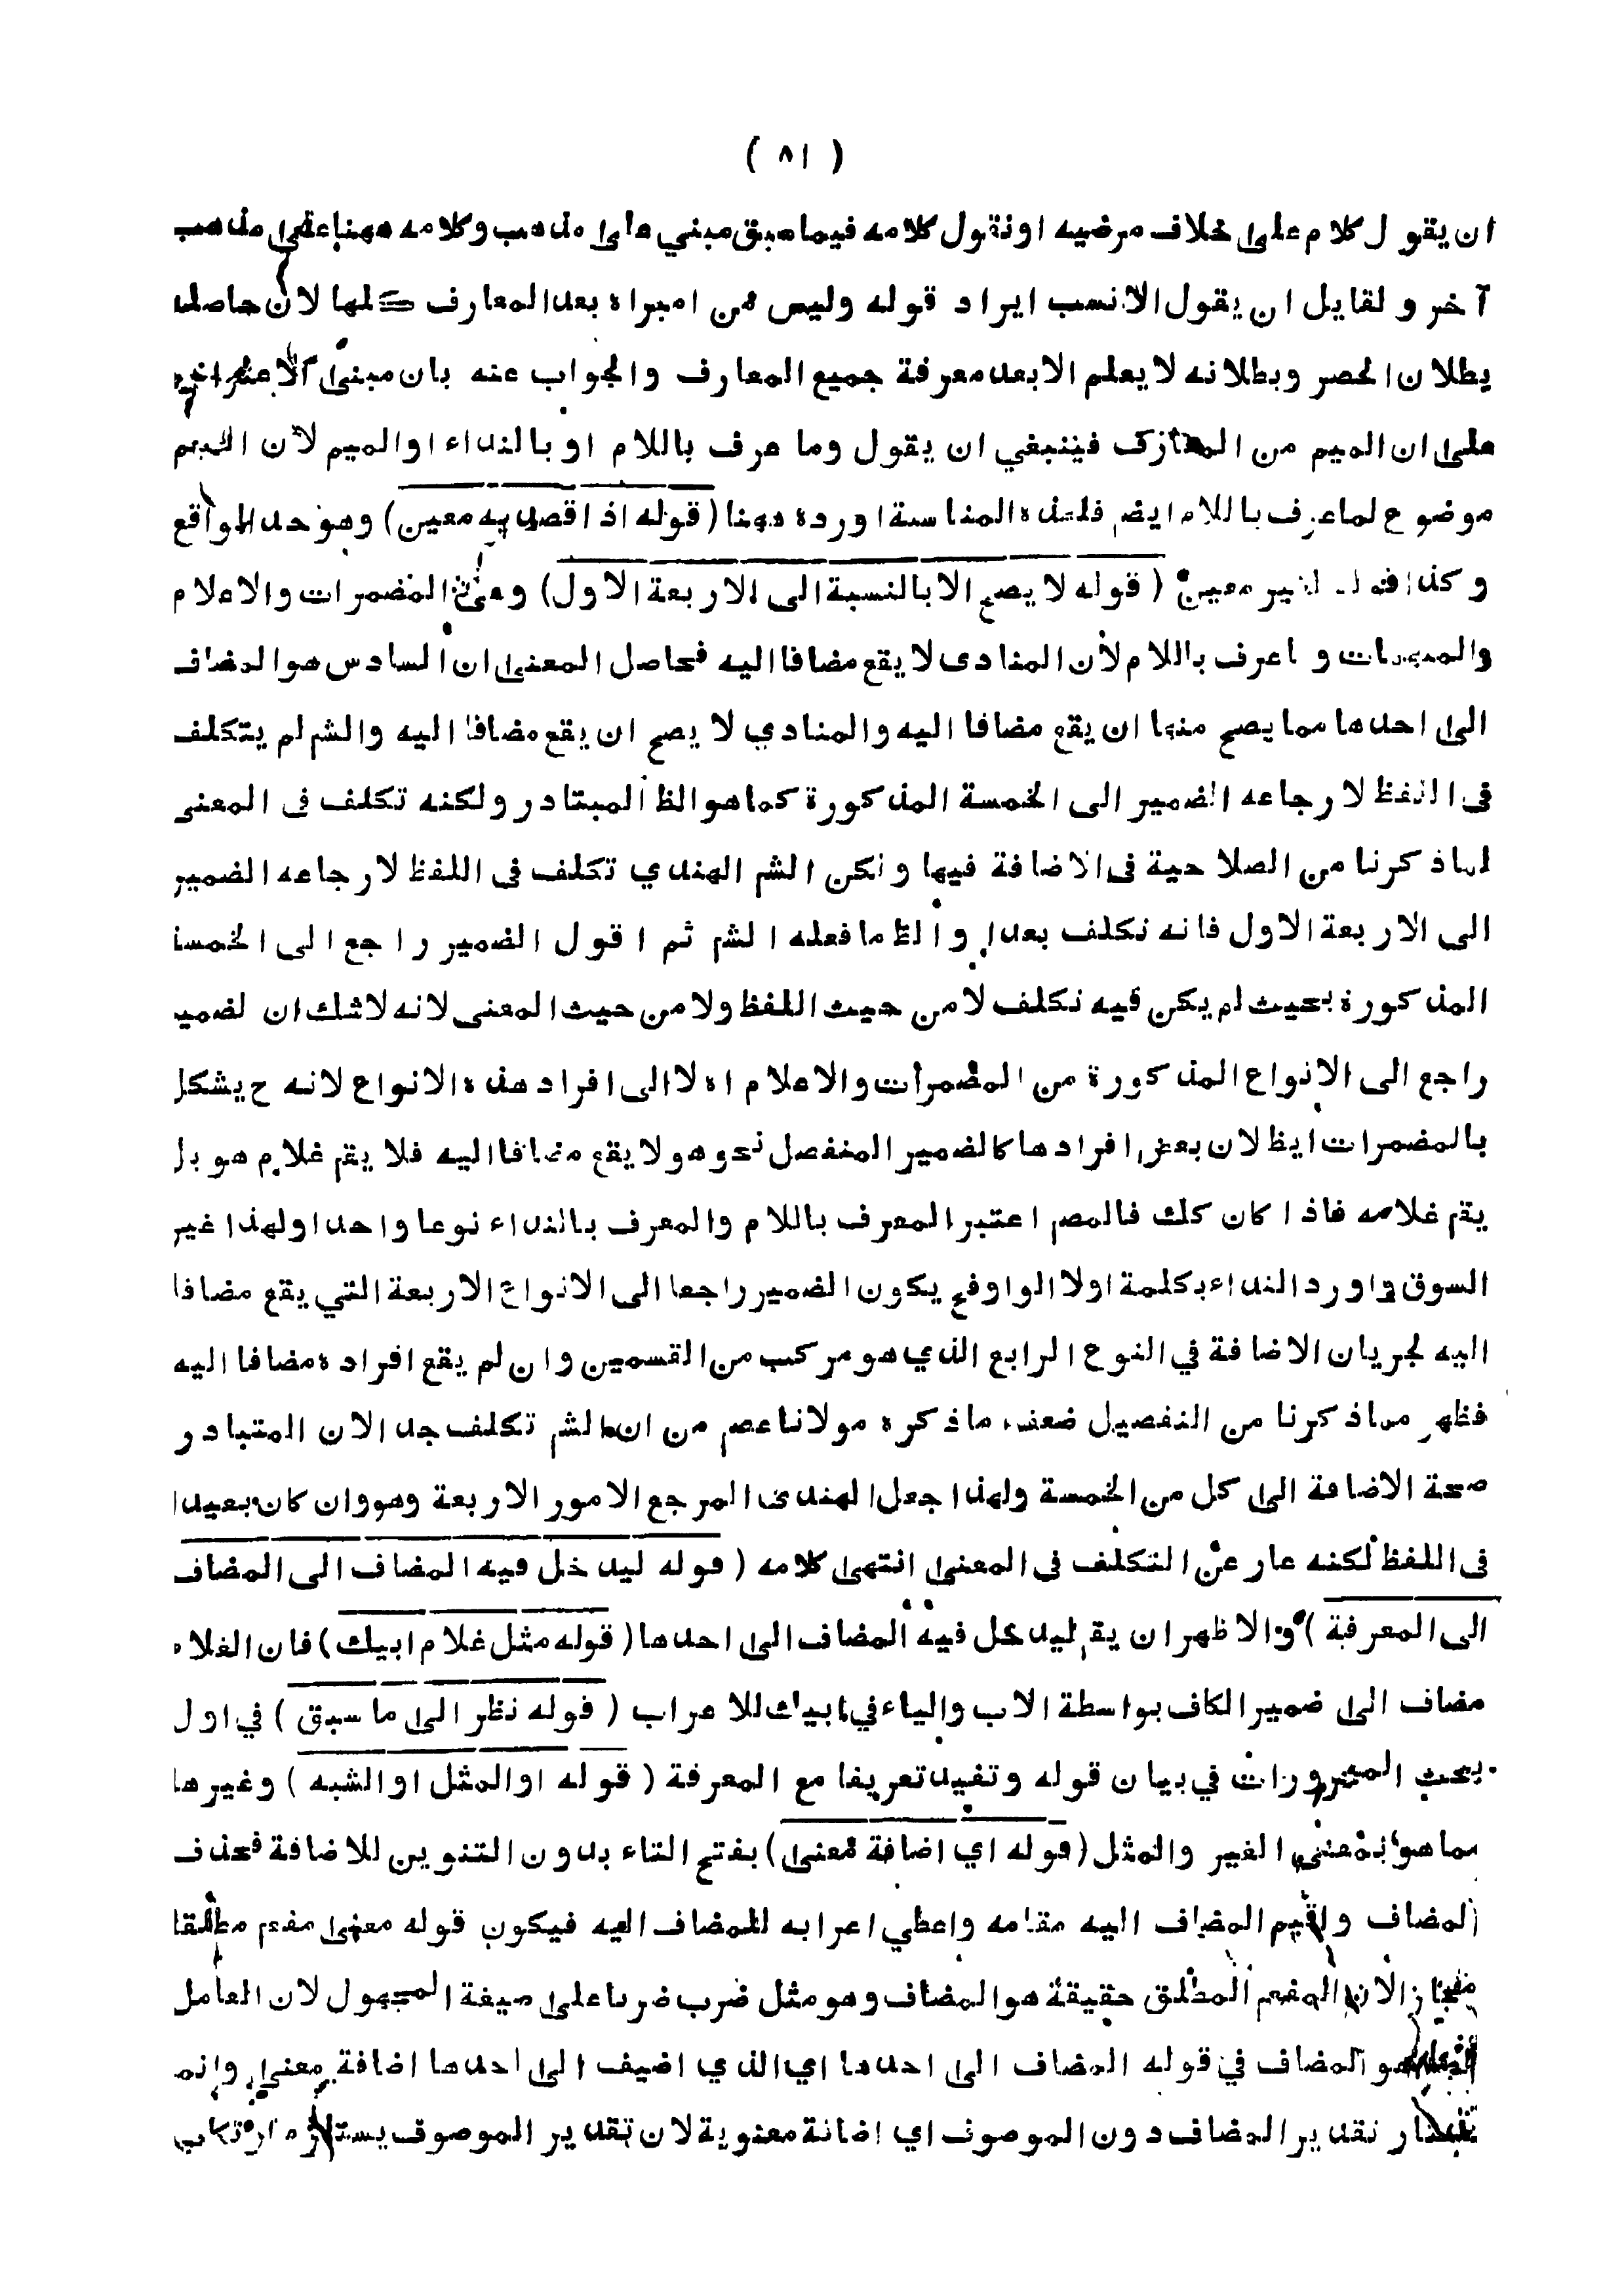 ( ٨١ )
ان يقول كلام على خلاف مرضيه او نقول كلامه فيما سبق مبني على مذهب وكلامه ههنا على مذهب
آخر ولقايل ان يقول الانسب ايراد قوله وليس من امبراه بعد المعارف كلها لان حاصله
بطلان الحصر وبطلانه لا يعلم الا بعد معرفة جميع المعارف والجواب عنه بان مبنى
على ان الميم من فينبغي ان يقول وما عرف باللام او بالنداء او الميم لان الميم
موضوع لما عرف باللام ايضم فلهذه المناسبة اورده ههنا ( قوله اذا قصد به معين ) وهو حد الواقع
وكذا لغير معين ( قوله لا يصح الا بالنسبة الى الاربعة الاول ) وهي المضمرات والاعلام
والمبهمات و ما عرف باللام لان المنادى لا يقع مضافا اليه فحاصل المعنى ان السادس هو المضاف
الى احدها مما يصح منها ان يقع مضافا اليه والمنادي لا يصح ان يقع مضافا اليه والشم لم يتكلف
فى اللفظ لارجاعه الضمير الى الخمسة المذكورة كما هو الظ المبتادر ولكنه تكلف فى المعنى
لما ذكرنا من الصلاحية فى الاضافة فيها ولكن الشم الهندي تكلف فى اللفظ لارجاعه الضمير
الى الاربعة الاول فانه تكلف بعد او الظ ما فعله الشم ثم اقول الضمير راجع الى الخمسة
المذكورة بحيث لم يكن فيه تكلف لا من حيث اللفظ ولا من حيث المعنى لانه لا شك ان لضمير
راجع الى الانواع المذكورة من المضمرات والاعلام اه لا الى افراد هذه الانواع لانه ح يشكل
بالمضمرات ايظ لان بعض افرادها كالضمير المنفصل نحو هو لا يقع مضافا اليه فلا يقم غلام هو بل
يقم غلامه فاذا كان كلك فالمصم اعتبر المعرف باللام والمعرف بالنداء نوعا واحدا ولهذا غير
السوق واورد النداء بكلمة او لا الواو فح يكون الضمير راجعا الى الانواع الاربعة التي يقع مضافا
اليه لجريان الاضافة في النوع الرابع الذي هو مركب من القسمين وان لم يقع افراده مضافا اليه
فظهر مما ذكرنا من التفصيل ضعف ما ذكره مولانا عصم من ان الشم تكلف جد الان المتبادر
صحة الاضافة الى كل من الخمسة ولهذا جعل الهندى المرجع الامور الاربعة وهو وان كان بعيدا
فى اللفظ لكنه عار عن التكلف فى المعنى انتهى كلامه ( قوله ليدخل فيه المضاف الى المضاف
الى المعرفة ) والاظهر ان يقم ليدخل فيه المضاف الى احدها ( قوله مثل غلام ابيك ) فان الغلام
مضاف الى ضمير الكاف بواسطة الاب والياء في ابيك للاعراب ( قوله نظر الى ما سبق ) في اول
بحث في بيان قوله وتفيد تعريفا مع المعرفة ( قوله او المثل او الشبه ) وغيرها
مما هو بمعنى الغير والمثل ( قوله اي اضافة معنى ) بفتح التاء بدون التنوين للاضافة فحذف
المضاف واقيم المضاف اليه مقامه واعطي اعرابه للمضاف اليه فيكون قوله معنى مفعم مطلقا
مجاز الان المفعم المطلق حقيقة هو المضاف وهو مثل ضرب ضربا على صيغة المجهول لان العامل
هو المضاف في قوله المضاف الى احدها اي الذي اضيف الى احدها اضافة معنى وانم
تقدير المضاف دون الموصوف اي اضافة معنوية لان تقدير الموصوف يستلزم ارتكاب